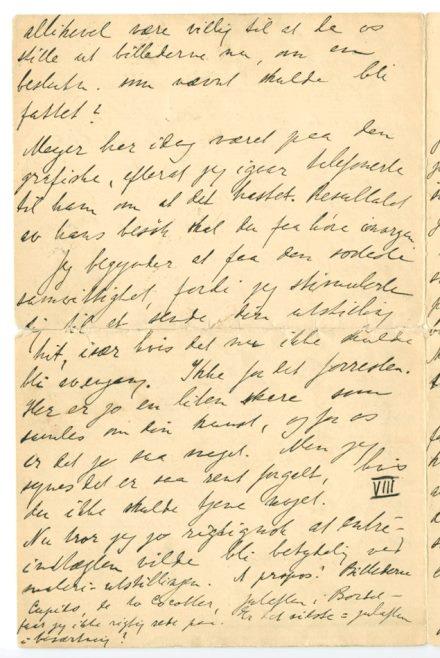 allikevel være villig til at la os
stille ut billederne nu, om en
beslutn. som nævnt skulde bli
fattet?
Meyer har idag været paa den
grafiske, efterat jeg igaar telefonerte
til ham om at det hastet. Resultatet
av hans besøk skal du faa høre imorgen.
Jeg begynder at faa den sorteste
samvittighet, fordi jeg stimulerte
dig til at sende din utstilling
hit, især hvis det nu ikke skulde
bli avengang. Ikke for det forresten.
Her er jo en liten skare som
samles om din kunst, og for os
er det jo saa meget. Men jeg
synes det er saa rent forgalt, hvis
du ikke skulde tjene noget.
VIII
Nu tror jeg jo rigtignok at entré-
indtægten vilde bli betydelig ved
maleri-utstillingen. A propos! Billederne
Cupido, de to Cocotter, Julaften i Bordel-
faar jeg ikke rigtig rede paa. Er det sidste = julaften
= besætning?